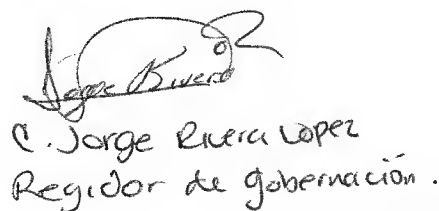 Jorge Rivera
C. Jorge Rivera Lopez
Regidor de gobernación.